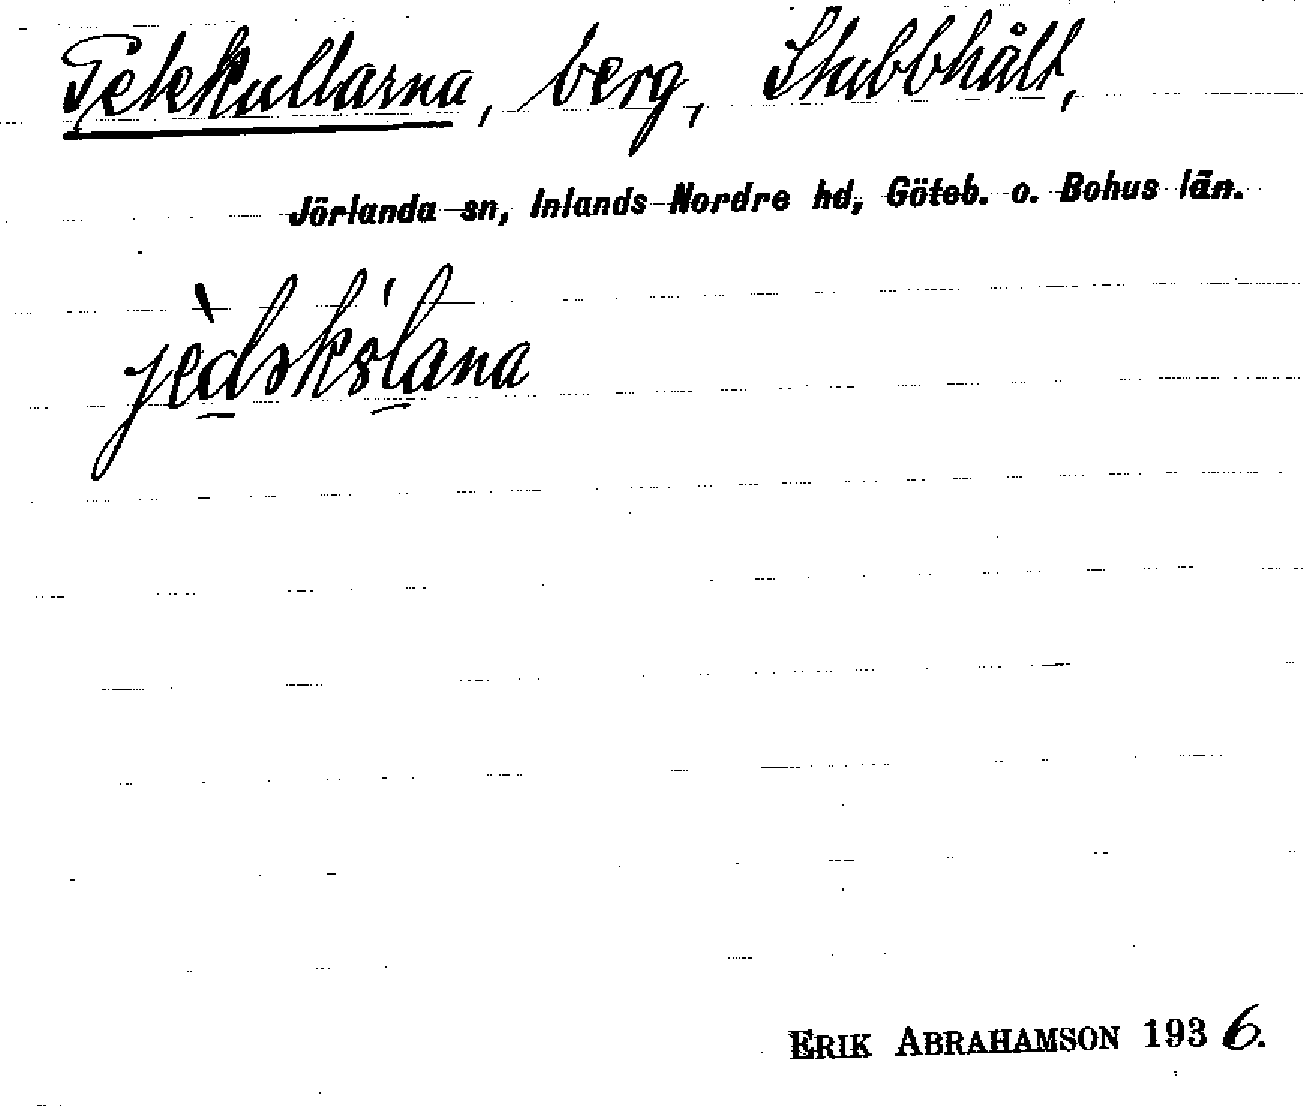 Getekullarna, berg, Stubbhält,
Jörlanda sn, Inlands Nordre hd, Göteb. o. Bohus län.
ERIK ABRAHAMSON 1936.